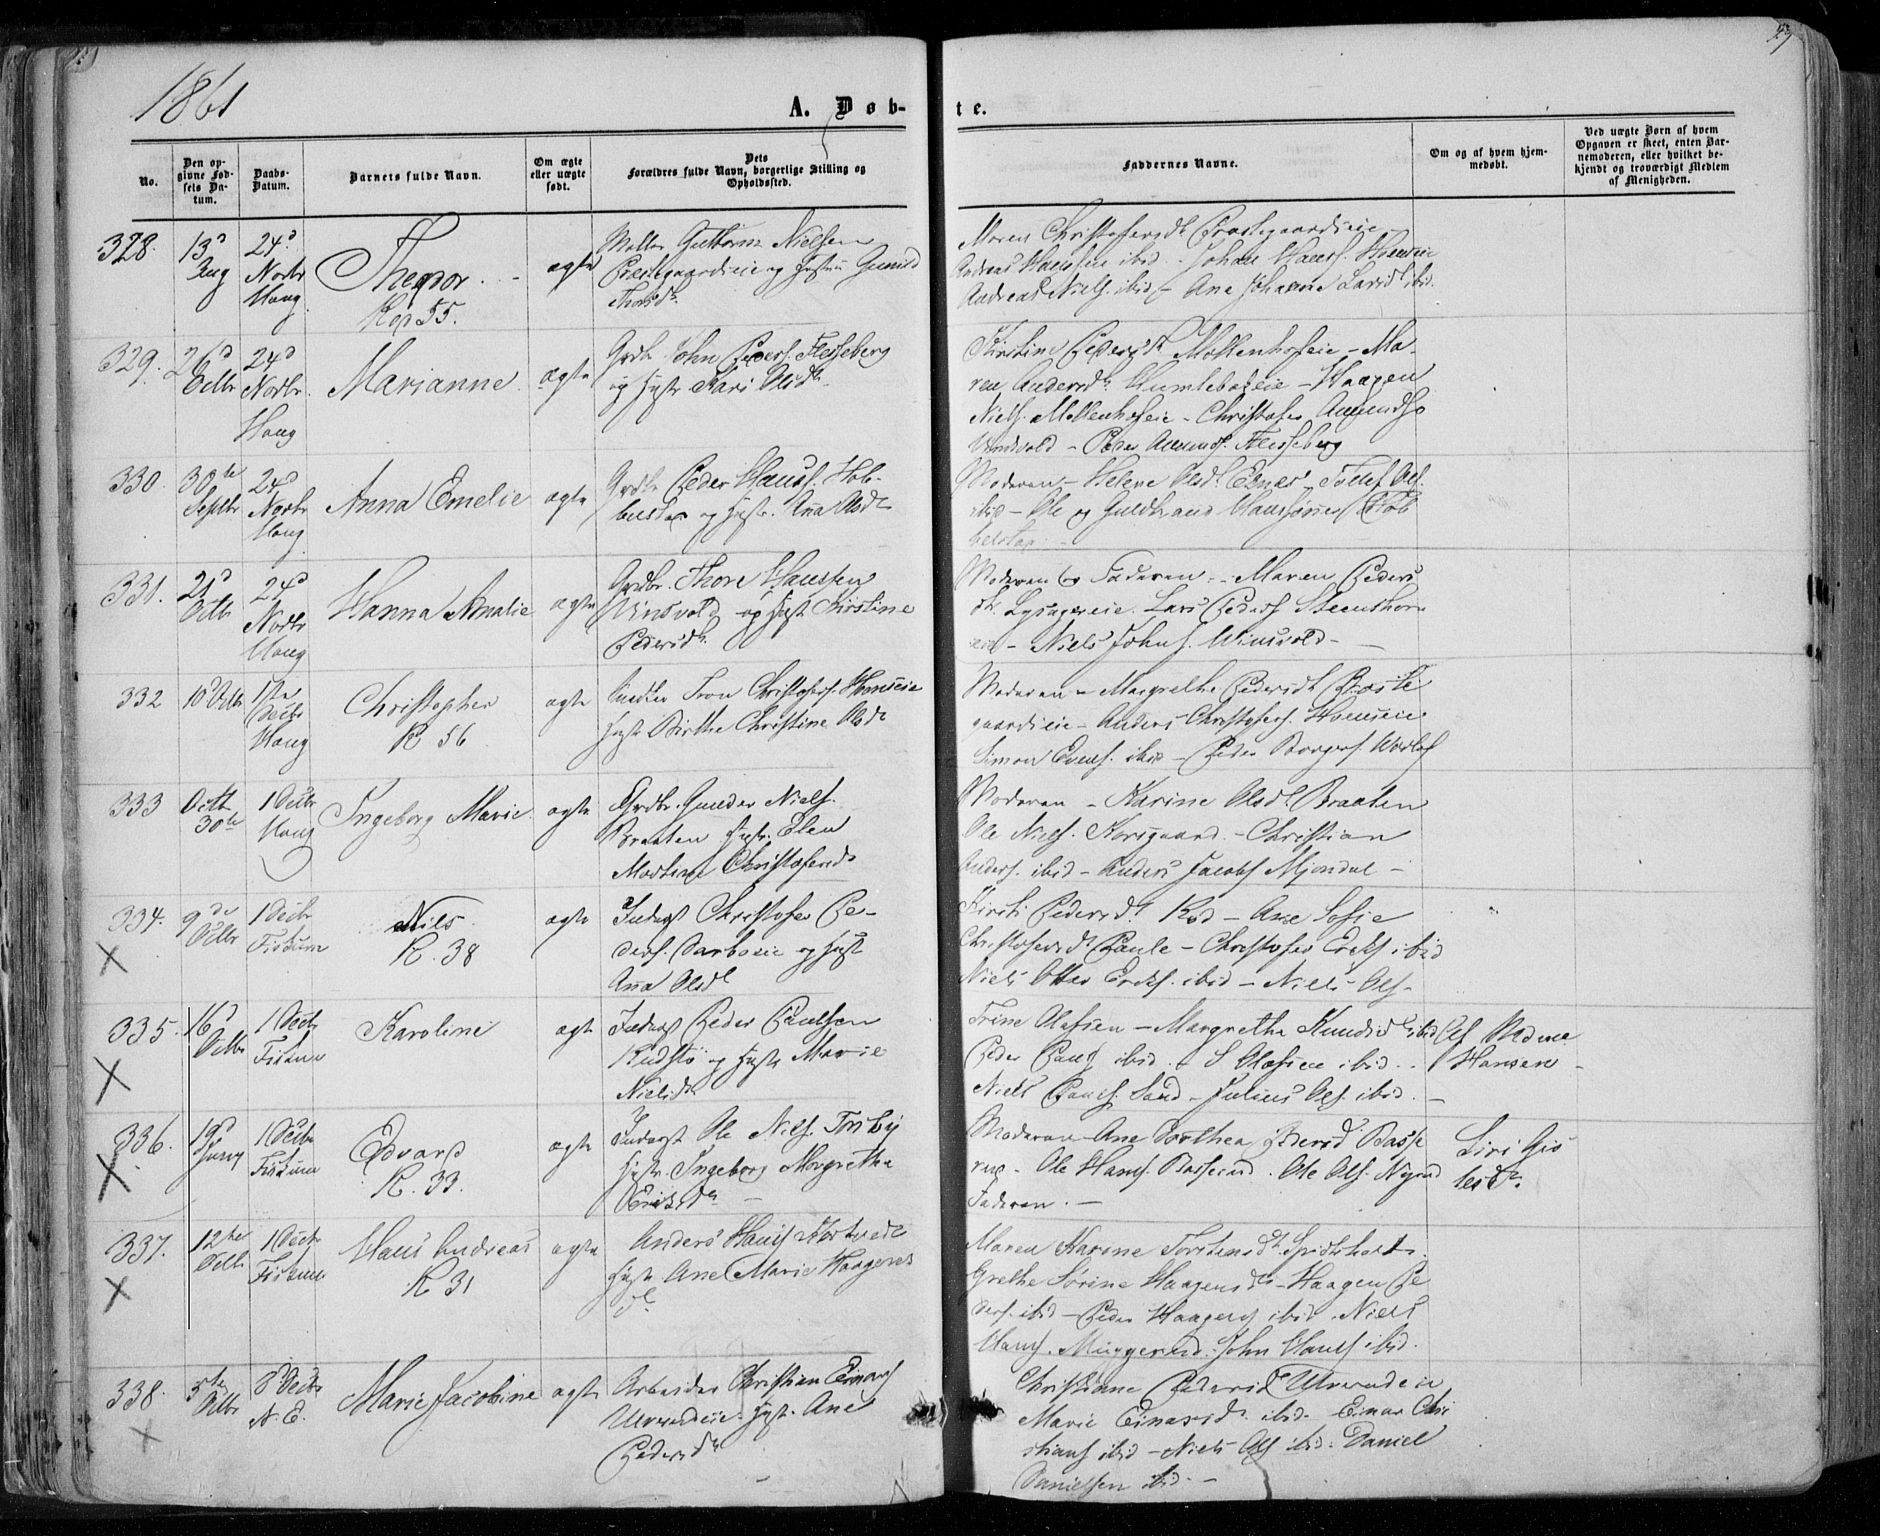 1861
A. Døb-
te.
No.
Den op-
givne Fød-
sels Da-
tum.
Daabs-
Datum.
Barnets fulde Navn.
Om ægte
eller uægte
født.
Dets
Forældres fulde Navn, borgerlige Stilling og
Opholdssted.
Faddernes Navne.
Om og af hvem hjem-
medøbt.
Ved uægte Børn af hvem
Opgaven er skeet, enten Bar-
nemoderen, eller hvilket be-
kjendt og troværdigt Medlem
af Menigheden.
328.
13d
Aug
24d
Novbr
Haug
Kop 55.
ægte
Guttorm Nielsen
Præstegaardseie og Hustru Gunild
Thorsdtr
Maren Christofersdtr Præstegaardseie
Andreas Hansen ibid - Johan Hans. Homseie
Andreas Niels. ibid - Ane Johanne Larsdtr ibid.
329.
26d
Octbr
24d
Novbr.
Haug
Marianne
ægte
Grdbr John Peders. Flesseberg
og Hustr Kari Olsdtr
Kirstine Pedersdtr Møllenhofeie - Ma-
ren Andersdtr - Haagen
Niels. Møllenhofeie - Christofer Amundsen
Vindvold - Peder Amunds. Flesseberg
330.
30te
Septbr
24d
Novbr
Haug
Anna Emelie
ægte
Grdbr Peder Hans. Hob-
belstad og Hustr. Ana Olsdtr
Moderen - Helene Olsdtr - Tollef Ols.
ibid - Ole og Guldbrand Hanssønner Hob
belstad
331.
21d
Octb
24d
Novbr
Haug
Hanna Amalie
ægte
Grdbr. Thore Hansen
Vindvold og Hustr Kirstine
Pedersdtr
Moderen og Faderen - Maren Peders
dtr Lysagereie. Lars Peders Steenshorn
eie - Niels Johns. Windvold -
332
10d Octb
1ste
Decbr
Haug
Christopher
K 56
ægte
Tron Christofers. Homseie
Hustr Birthe Christine Olsdtr
Moderen - Margrethe Pedersdtr Præste
gaardseie - Anders Christofers. Homseie
Simon Evens. ibid - Peder
333
Octb
30te
1 Decbr
Haug
Ingeborg Marie
ægte
Grdbr. Gunder Niels.
Braaten Hustr. Elen
Martine Christofersdtr
Moderen - Karine Olsdtr Braaten
Ole Niels. Korsgaard - Christian
Anders. ibid - Anders Jacobs Mjøndal -
334.
9de
Octbr
1 Decbr
Fiskum
Nils
K. 38
ægte
Inderst Christofer Pe-
ders. Darboeie og Hustr
Ana Olsdtr
Kirsti Pedersdtr Rød - Ane Sofie
Christofersdtr Paule - Christofer Eriks. ibid
Niels Otter Eriks. ibid - Niels Ols.
335.
16d
Octbr
1 Decbr
Fiskum
Karoline
ægte
Inderst Peder Paulsen
og Hustr Marie
Nielsdtr
Trine Olafsen - Margrethe Knudsdtr ibid
Peder Pauls ibid. S Olafsen ibid.
Niels Pauls. Sand - Julius Ols ibid. -
Af Madme
Hansen
336.
19d
1 Decbr
Fiskum
Edvard
K. 33.
ægte
Inderst Ole Niels. Foseby
Hustr. Ingeborg Margrethe
Eriksdtr
Moderen - Ane Dorthea Pedersd Basse
rud - Ole Hans. Basserud. Ole Ols. Nyrud
Faderen. -
Siri Gis
lesdtr.
337.
12te
Octb
1 Decbr
Fiskum
Hans Andreas
K 31
ægte
Anders Hans Kortvedt
Hustr. Ane Marie Haagens
dtr
Maren Karine Torstensdtr
Grethe Sørine Haagensdtr - Haagen Pe
ders. ibid - Peder Haagens ibid. Niels
Hans. Muggerud. John Hans ibid.
338.
5te
Octbr
8 Decbr
N. E.
Marie Jacobine
ægte
Arbeider Christian Einars
Hustr. Ane
Pedersdtr
Christiane Pedersdtr
Marie Einarsdtr ibid - Einar Chri
stians ibid - Niels Ols ibid. Daniel
Danielsen ibid. -